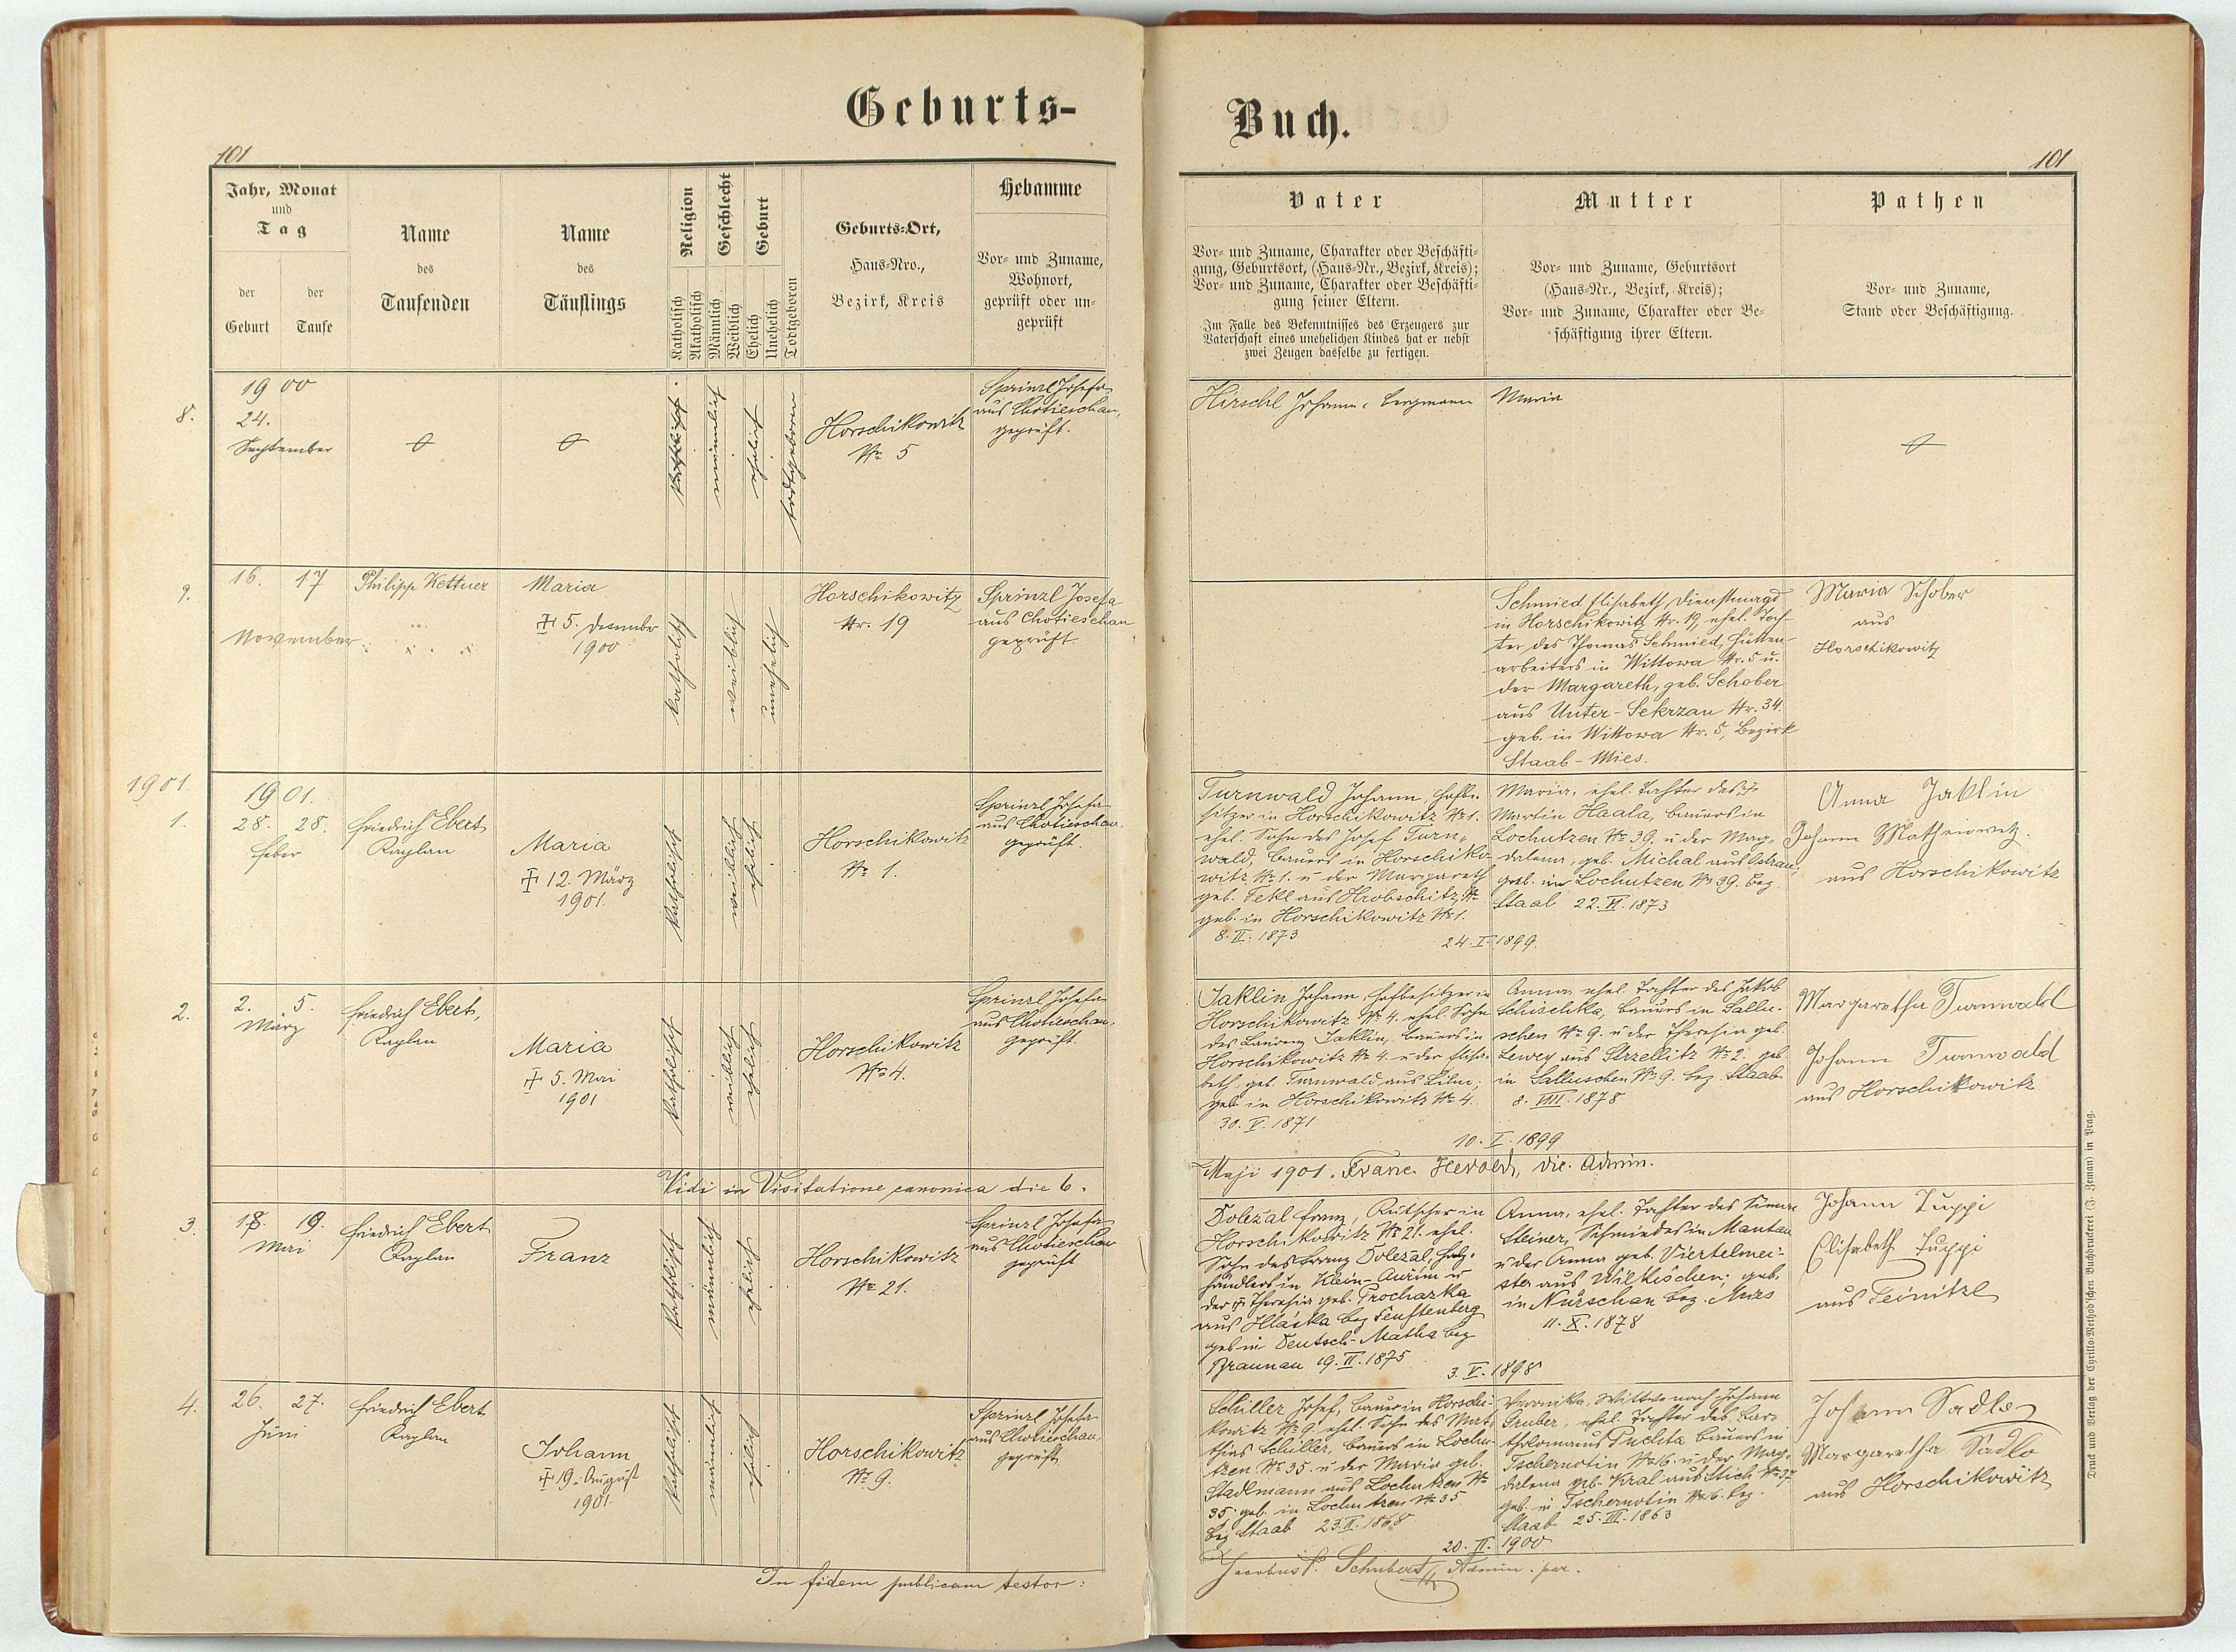 Geburts-
101
Jahr, Monat
und
Tag
der
Geburt
der
Taufe
Name
des
Taufenden
Name
des
Täuflings
Religion
Katholisch
Akatholisch
Geschlecht
Männlich
Weiblich
Geburt
Ehelich
Unehelich
Todtgeboren
Geburts-Ort,
Haus-Nro.,
Bezirk, Kreis
Hebamme
Vor- und Zuname,
Wohnort,
geprüft oder un-
geprüft
8.
1900
24.
September
katholisch
männlich
ehelich
todtgeboren
Horschikowitz
№ 5
Sprinzl Josefa
aus Chotieschau,
geprüft.
9.
16. 17
November
Philipp Kettner
Maria
5. December
1900
katholisch
weiblich
unehelich
Horschikowitz
Nr. 19
Sprinzl Josefa
aus Chotieschau
geprüft.
1901.
1.
1901.
28. 28.
Feber
Friedrich Ebert
Kaplan
Maria
12. März
1901.
katholisch
weiblich
ehelich
Horschikowitz
№ 1.
Sprinzl Josefa
aus Chotieschau.
geprüft.
2.
2. 5.
März
Friedrich Ebert,
Kaplan
Maria
5. Mai
1901
katholisch
weiblich
ehelich
Horschikowitz
№ 4.
Sprinzl Josefa
aus Chotieschau,
geprüft.
Vidi in Visitatione canonica die 6.
3.
18. 19.
Mai
Friedrich Ebert
Kaplan
Franz
katholisch
männlich
ehelich
Horschikowitz
№ 21.
Sprinzl Josefa
aus Chotieschau
geprüft
4.
26. 27.
Juni
Friedrich Ebert
Kaplan
Johann
19. August
1901.
katholisch
männlich
ehelich
Horschikowitz
№ 9.
Sprinzl Josefa
aus Chotieschau
geprüft
In fidem publicam testor:
Buch.
101
Vater
Vor- und Zuname, Charakter oder Beschäfti-
gung, Geburtsort, (Haus-Nr., Bezirk, Kreis);
Vor- und Zuname, Charakter oder Beschäfti-
gung seiner Eltern.
Im Falle des Bekenntnisses des Erzeugers zur
Vaterschaft eines unehelichen Kindes hat er nebst
zwei Zeugen dasselbe zu fertigen.
Mutter
Vor- und Zuname, Geburtsort
(Haus-Nr., Bezirk, Kreis);
Vor- und Zuname, Charakter oder Be-
schäftigung ihrer Eltern.
Pathen
Vor- und Zuname,
Stand oder Beschäftigung.
Hirschl Johann, Bergmann
Maria
Schmied Elisabeth, Dienstmagd
in Horschikowitz Nr. 19, ehel. Toch-
ter des Thomas Schmied, Hütten-
arbeiters in Wittowa Nr. 5 u.
der Margareth, geb. Schober
aus Unter-Sekrzan Nr. 34.
geb. in Wittowa Nr. 5, Bezirk
Staab-Mies.
Maria Schober
aus
Horschikowitz
Turnwald Johann, Hofbe-
sitzer in Horschikowitz № 1.
ehel. Sohn des Josef Turn-
wald, Bauers in Horschiko-
witz № 1. u der Margareth
geb. Fekl aus Hrobschitz №
geb. in Horschikowitz № 1.
8. II. 1873
Maria, ehel. Tochter des
Martin Haala, Bauers in
Lochutzen № 39. u der Mag-
dalena, geb. Michal aus
geb. in Lochutzen № 39. Bez.
Staab 22. VI. 1873
24. I. 1899.
Anna Jaklin
Johann Matheiowetz.
aus Horschikowitz
Jaklin Johann, Hofbesitzer in
Horschikowitz № 4. ehel. Sohn
des Lorenz Jaklin, Bauers in
Horschikowitz № 4. u der Elisa-
beth, geb. Turnwald aus Lihn;
geb. in Horschikowitz № 4.
30. V. 1871
Anna, ehel. Tochter des Jakob
Schischka, Bauers in Sallu-
schen № 9. u der Theresia geb.
Lewey aus Strzellitz № 2. geb.
in Salluschen № 9. Bez. Staab
8. VIII. 1878
10. I. 1899
Margaretha Turnwald
Johann Turnwald
aus Horschikowitz
Maji 1901. Franc. Herold, vic. Admin.
Dolezal Franz, Kutscher in
Horschikowitz № 21. ehel.
Sohn des Franz Dolezal, Holz-
händlers in Klein-Aurim u
der Theresia geb. Prochazka
aus Hlaska Bez Senftenberg
geb in Deutsch-Matha Bez
Braunau 19. II. 1875
Anna, ehel. Tochter des Simon
Steiner, Schmiedes in Mantau
u der Anna geb. Viertelmei-
ster aus Wilkischen; geb.
in Nürschan Bez. Mies
11. X. 1878
3. V. 1898
Johann Tuppi
Elisabeth Tuppi
aus Teinitzl
Schiller Josef, Bauer in Horschi-
kowitz № 9. ehel. Sohn des Mat-
thias Schiller, Bauers in Lochu-
tzen № 35. u der Maria geb.
Stadlmann aus Lochutzen №
35. geb. in Lochutzen № 35
Bez Staab 23. II. 1868
Veronika, Witwe nach Johann
Gruber, ehel. Tochter des Bar-
tholomäus Puchta Bauers in
Tschernotin № 16. u der Mag-
dalena geb. Kral aus Stich № 37
geb. in Tschernotin № 16. Bez.
Staab 25. III. 1863
20. II. 1900
Johann Sadlo
Margaretha Sadlo
aus Horschikowitz
Jacobus P. Schubert, Admin. par.
Druck und Verlag der Cyrillo-Method'schen Buchdruckerei (J. Zeman) in Prag.